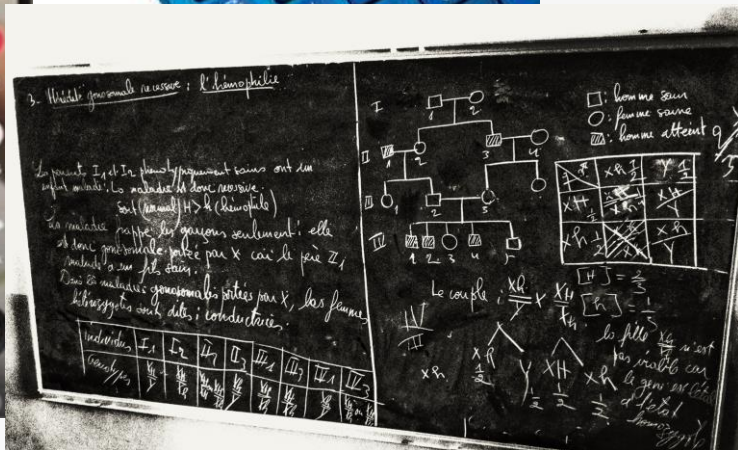 3. Hérédité gonosomale recessive : l'hémophilie
Les parents I1 et I2 phénotypiquement sains ont un
enfant malade : la maladie est donc recessive.
Soit (normal) H > h (hémophile)
La maladie frappe les garçons seulement : elle
est donc gonosomale portée par X car le père II1
malade a un fils sain.
Dans les maladies gonosomales portées par X, les femmes
hétérozygotes sont dites : conductrices.
Individus I1 I2 II2 II3 III2 III3 IV1 IV3
Génotypes
I 1 2
II 1 2 3 4
III 1 2 3
IV 1 2 3 4 5
: homme sain
: femme saine
: homme atteint
Xh 1/2 Y 1/2
XH 1/2 XH/Y
Xh 1/2 Xh/Y
[H] = 2/3
[h] = 1/3
Le couple : Xh/Y X XH/Xh
Xh 1/2 Y 1/2 XH 1/2 Xh 1/2
la fille Xh/Xh n'est
pas viable car
le gène est létal
à l'état
homozygote